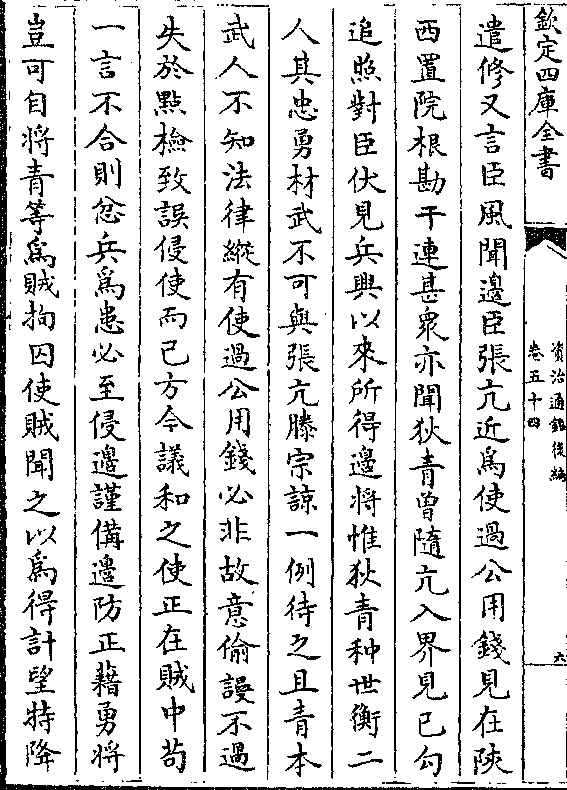 欽定四庫全書
資治通鑑後編
卷五十四
六
遣修又言臣風聞邊臣張亢近為使過公用錢見在陝
西置院根勘干連甚衆亦聞狄青曽隨亢入界見已勾
追照對臣伏見兵興以來所得邊將惟狄青种世衡二
人其忠勇材武不可與張亢滕宗諒一例待之且青本
武人不知法律縱有使過公用錢必非故意偷謾不過
失於點檢致誤侵使而已方今議和之使正在賊中茍
一言不合則忿兵為患必至侵邊謹備邊防正藉勇將
豈可自將青等為賊拘囚使賊聞之以為得計望特降